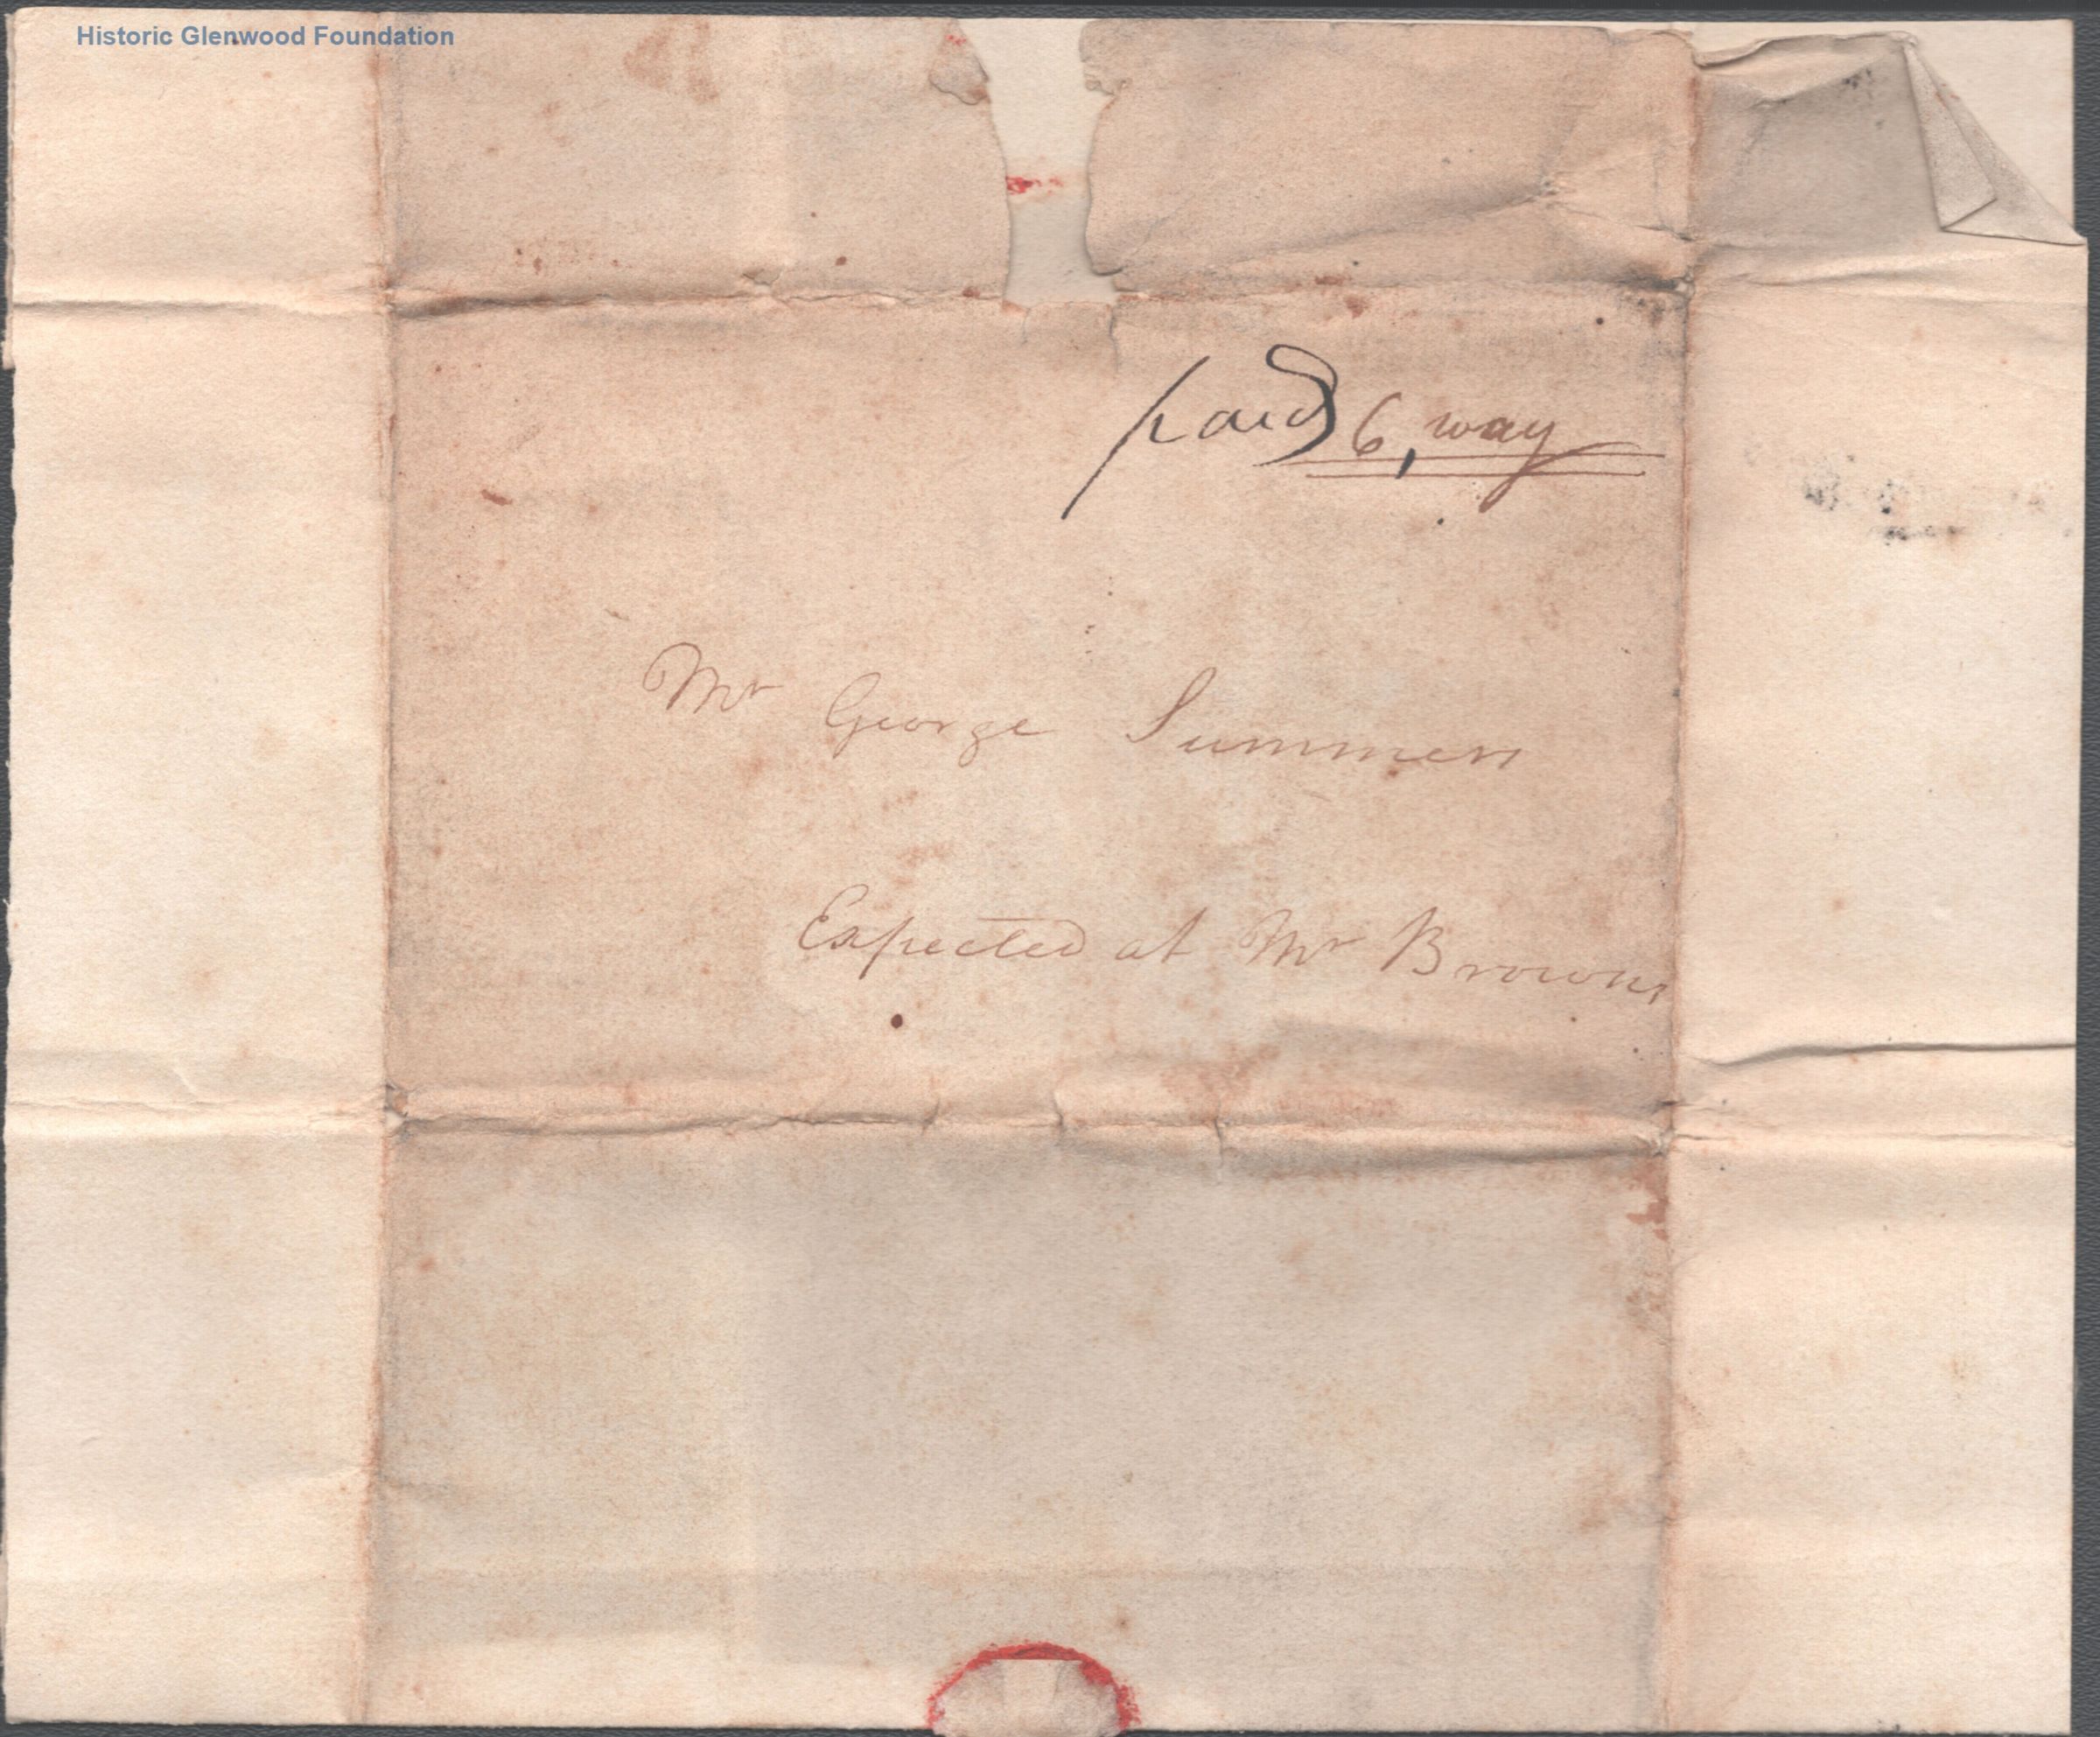 Historic Glenwood Foundation
paid 6, way
Mr George Summers
Expected at Mr Browns